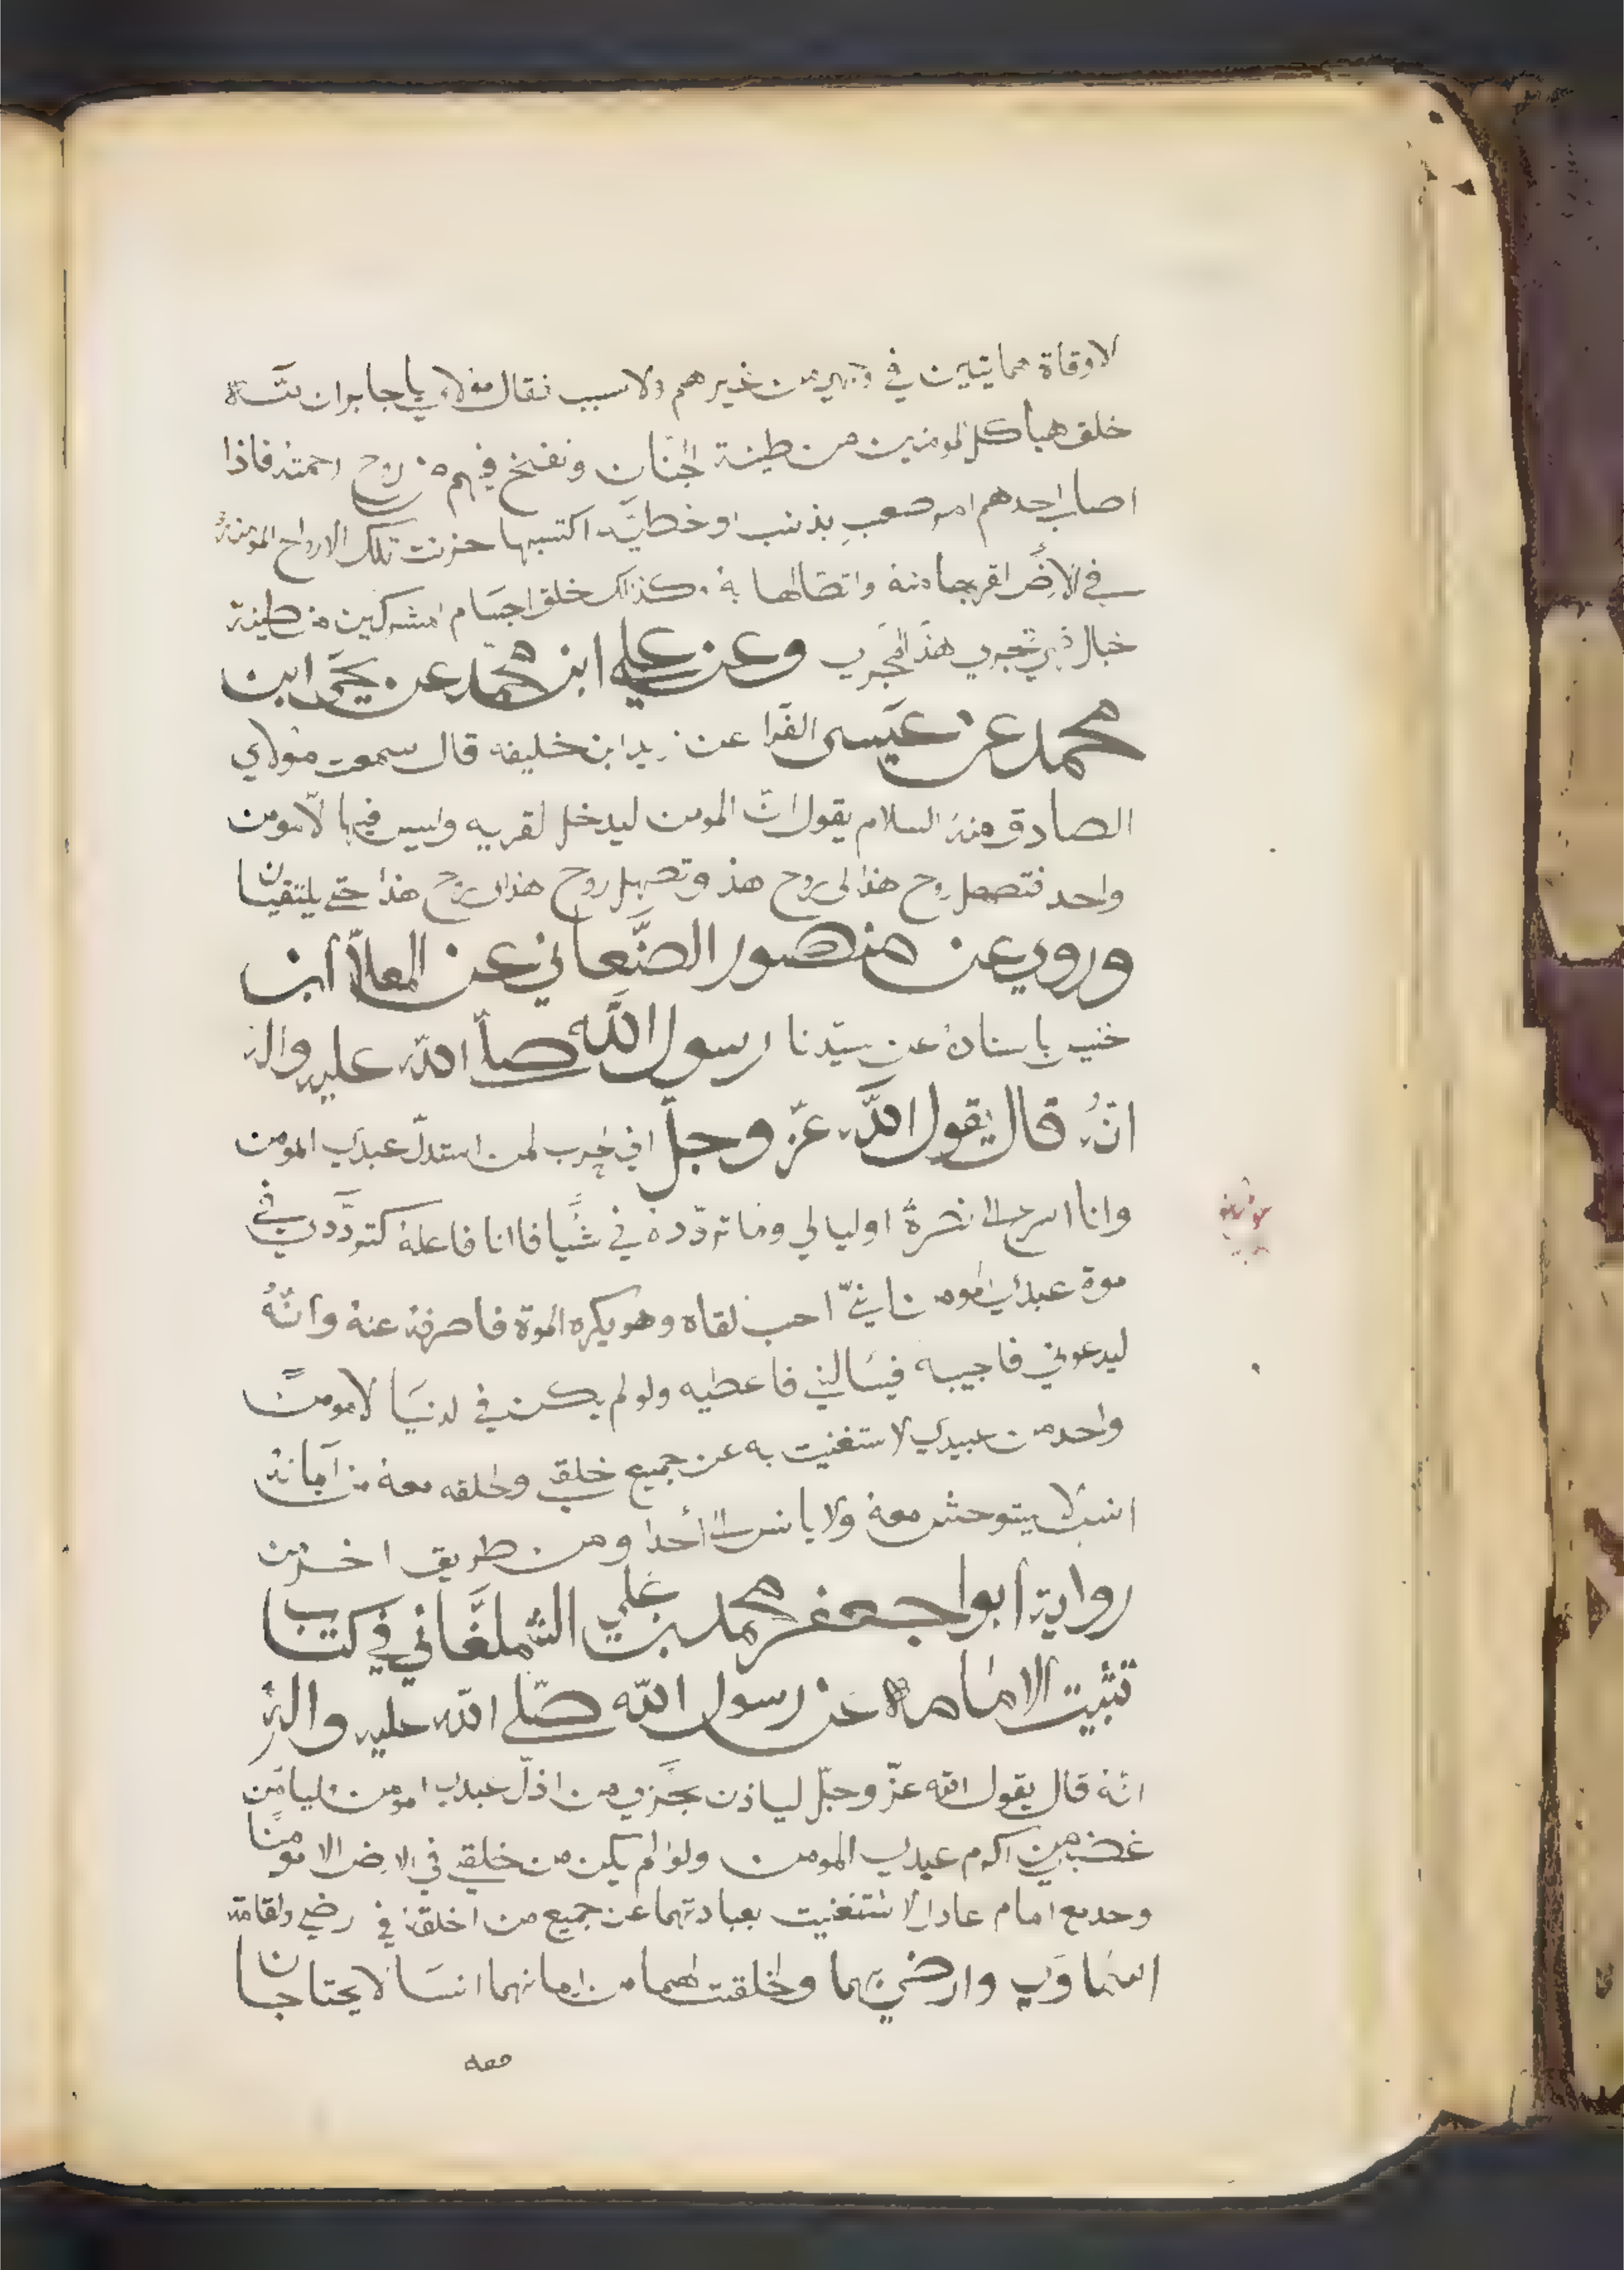 الاوقاة مما يتبين في وجهي من غيرهم ولا سبب فقال مولاي يا جابر ان الله
خلق هياكل المومنين من طينة الجنان ونفخ فيهم من روح رحمته فاذا
اصاب احدهم امر صعب بذنب او خطيه اكتسبها حزنت تلك الارواح المومنة
في الارض لقربها منه واتصالها به وكذلك خلق اجسام المشركين من طينة
خبال فهي تجري هذا المجرى وعن علي ابن محمد عن يحيى ابن
محمد عن عيسى الفرا عن زيد ابن خليفه قال سمعت مولاي
الصادق منه السلام يقول ان المومن ليدخل لقريه وليس فيها الا مومن
واحد فتصهل روح هذا الى روح هذا وتصهل روح هذا الى روح هذا حتى يلتقيان
وروي عن منصور الصنعاني عن المعلا ابن
خنيس باسناده عن سيدنا رسول الله صلا الله عليه واله
انه قال يقول الله عز وجل اني حرب لمن استدل عبدي المومن
وانا اسرع الى نصرة اوليا لي وما تردده في شيا فا انا فاعله كترددي في
موة عبدي المومن فاني احب لقاه وهو يكره الموة فاصرفه عنه وانه
ليدعوني فاجيبه فيسالني فاعطيه ولو لم يكن في لدنيا الا مومن
واحد من عبيدي لاستغنيت به عن جميع خلقي وخلقه معه من ايمانه
انس لا يتوحش معه ولا يانس الى احدا ومن طريق اخر من
رواية ابوا جعفر محمد بن علي الشملغاني في كتاب
تثبيت الامامه عن رسول الله صلى الله عليه واله
انه قال يقول الله عز وجل لياذن بحزي من اذل عبدي المومن وليامن
غضبي من اكرم عبدي المومن ولو لم يكن من خلقي في الارض الا مومنا
وحد مع امام عادل لاستغنيت بعبادتهما عن جميع من اخلقه في رضي ولقامة
السماوي وارضي بهما وخلقت لهما من ايمانهما انسا لا يحتاجان
معه